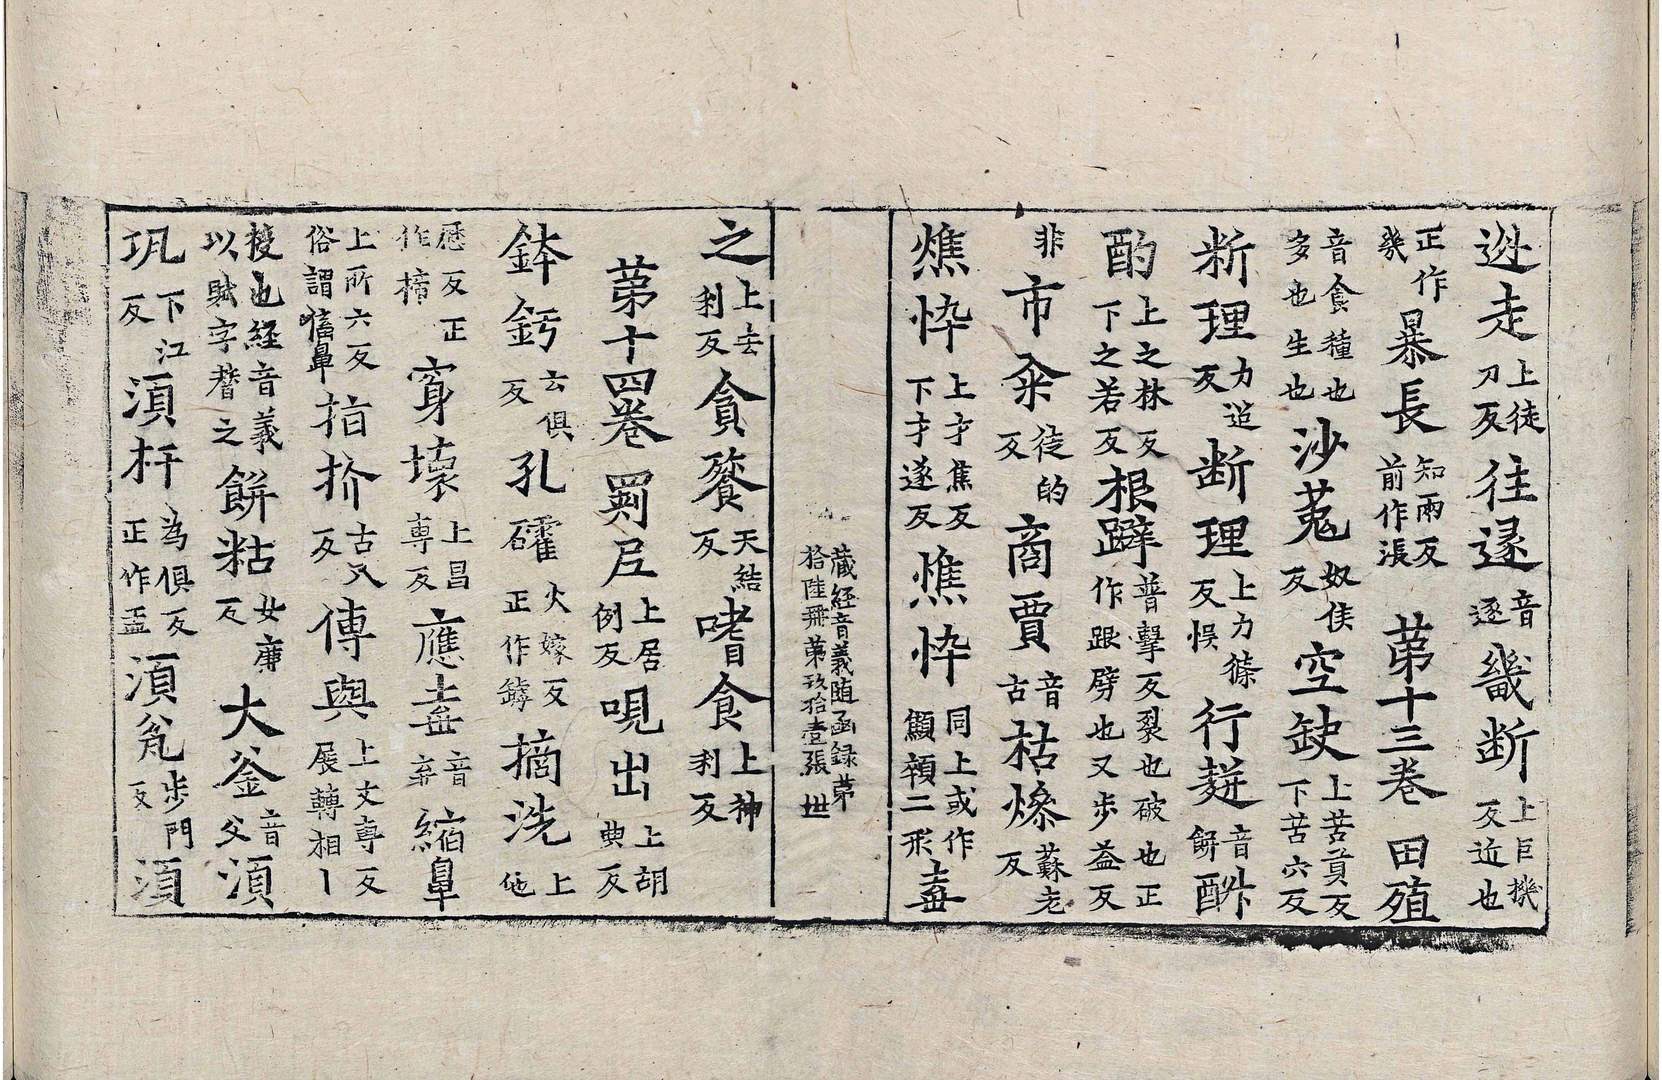 迯走上徒刀反往遂音逐畿断上巨機反近也
正作畿暴長知兩反前作漲第十三卷田殖
音食種也多也生也沙䓵奴侯反空缺上苦貢反下苦穴反
断理力迢反断理上力條反悞行麨音餅酙
酌上之林反下之若反根躃普擊反裂也破也正作𨂂劈也又步益反
非市籴徒的反商賈音古枯燥蘇老反
燋悴上才焦反下才遂反憔悴同上或作顦顇二形盡
藏經音義随函録第拾陸冊第玖拾壹張 世
之上去利反貪餮天結反嗜食上神利反
第十四卷罽𡰱上居例反哯出上胡典反
鉢鈣云俱反孔礭火嫁反正作罅摘洗上他
歷反正作擿甎壊上昌専反應盡音弃縮鼻
上所六反俗謂搐鼻㧗扴古八反傳與上文専反展轉相丨
授也経音義以賦字替之餅粘女廉反大釡音父湏
巩下江反湏杅為俱反正作盂湏瓫歩門反湏